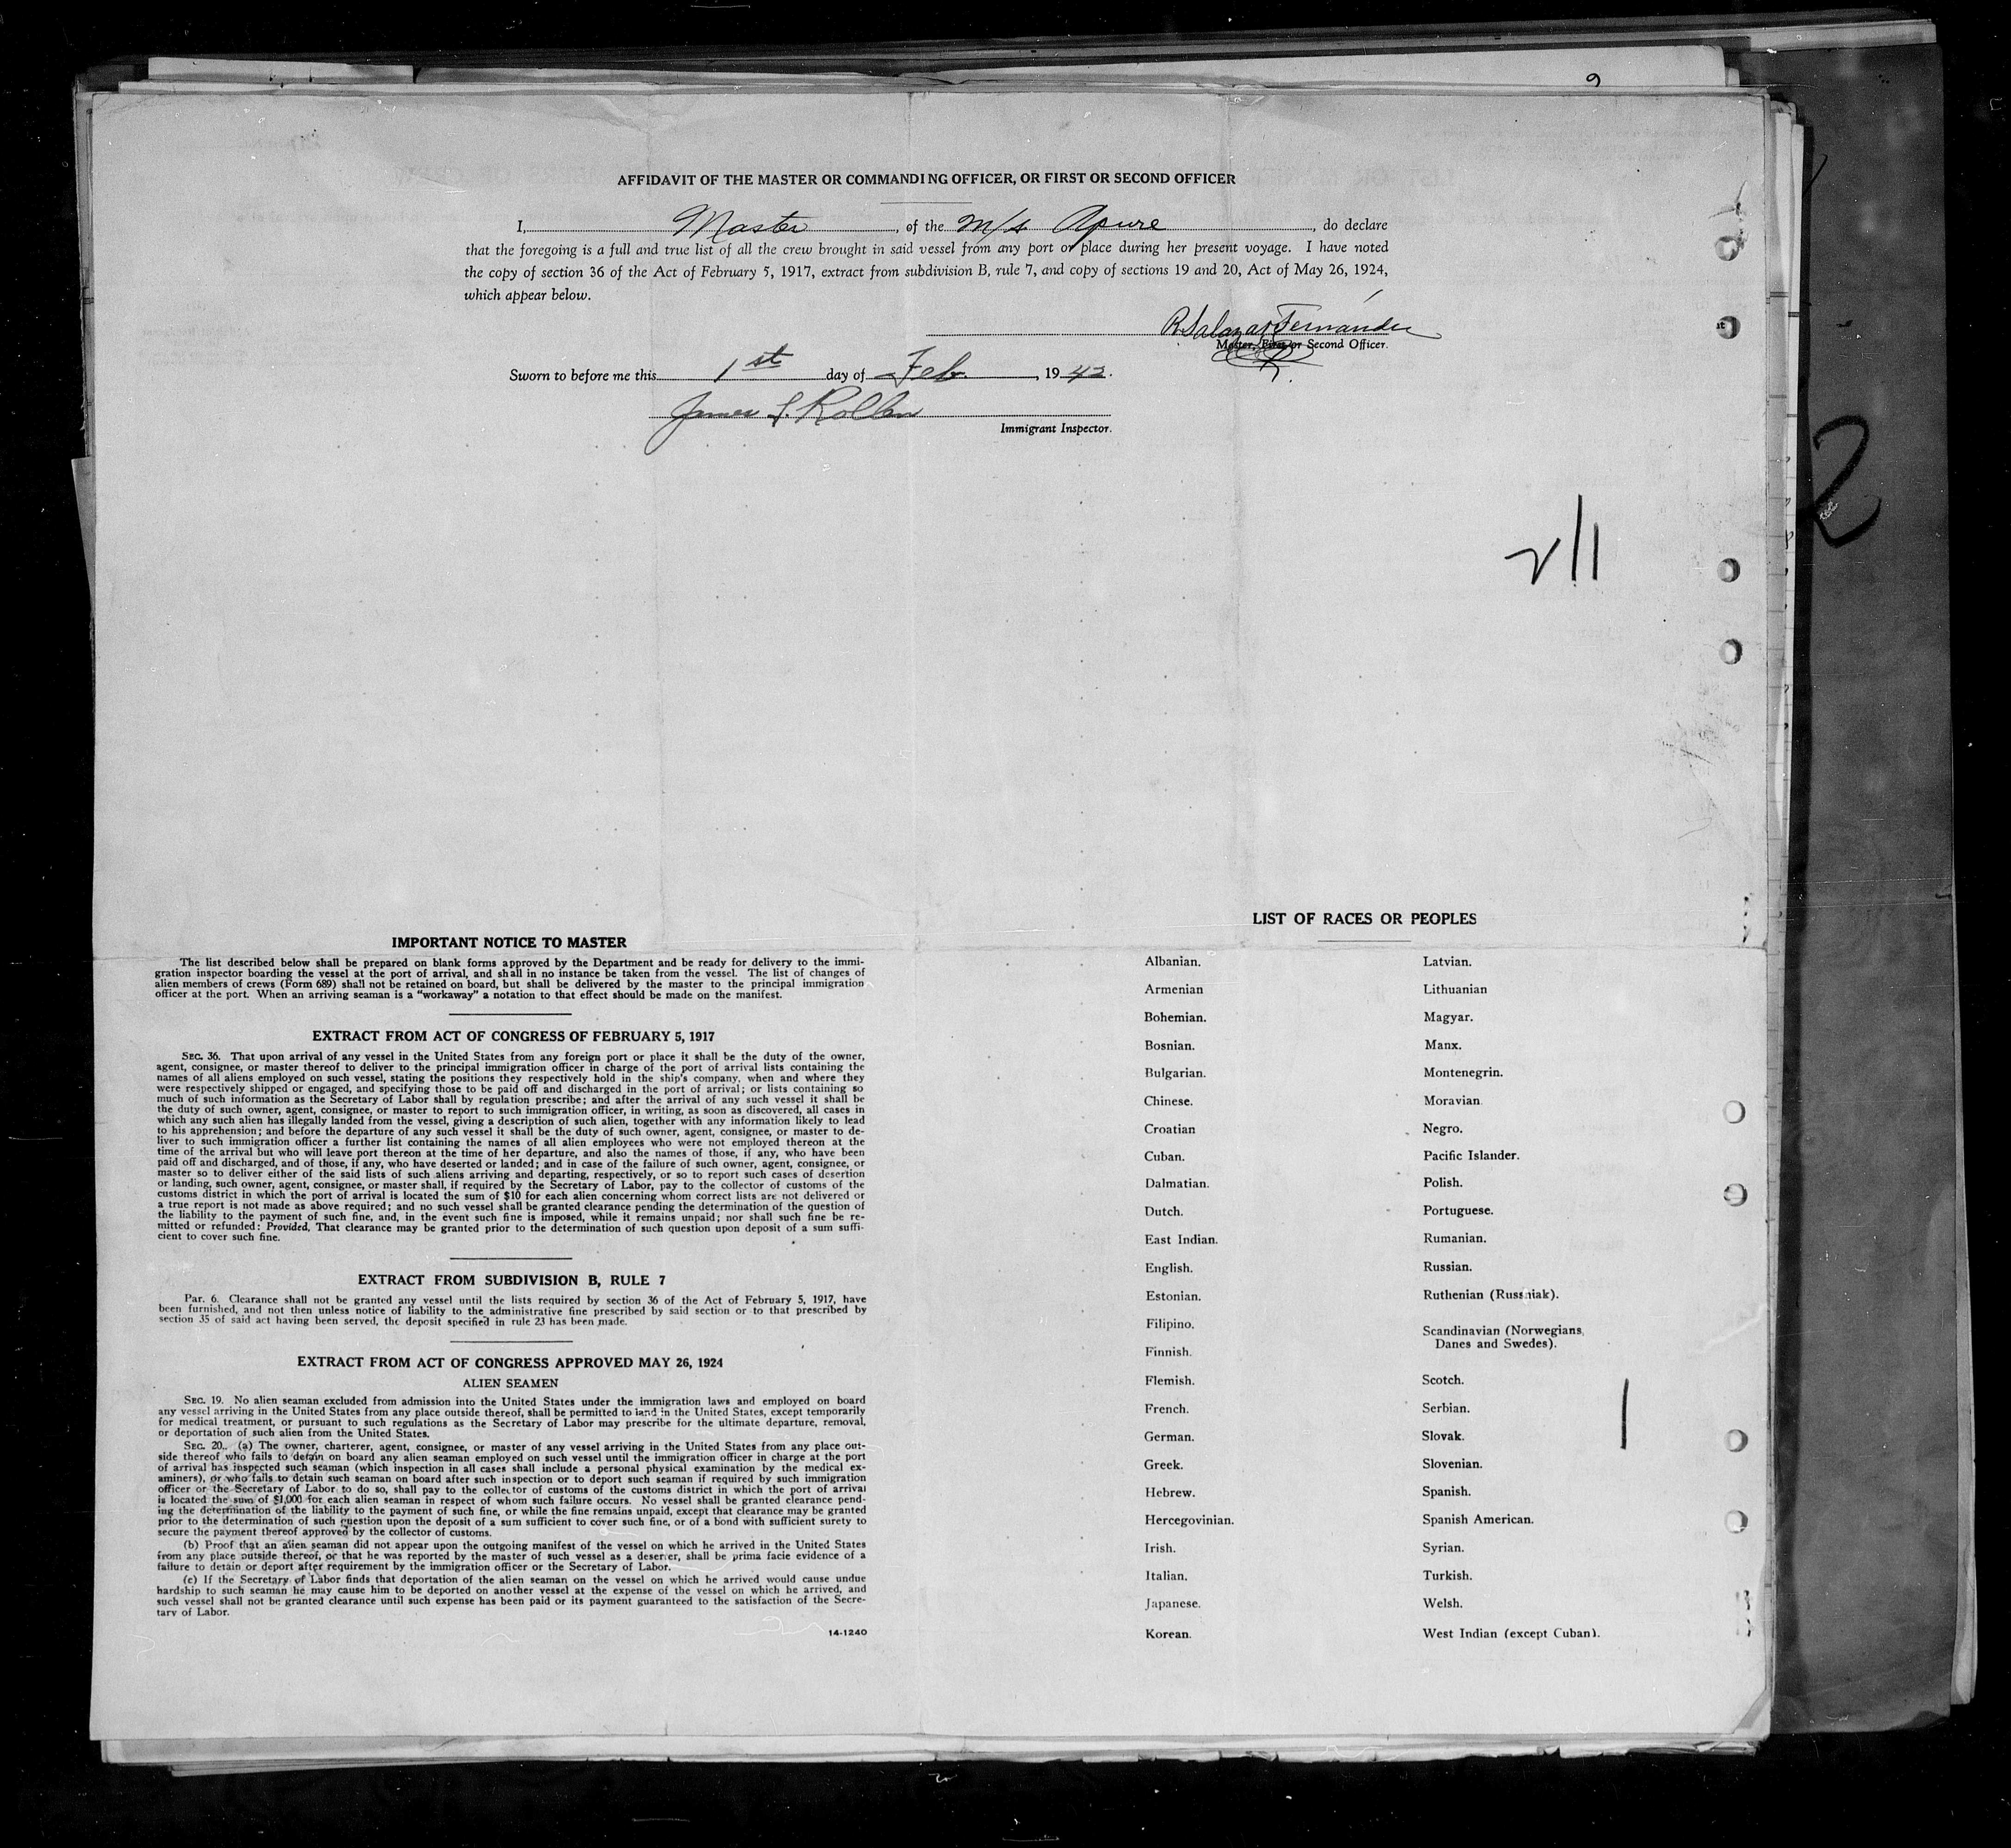 AFFIDAVIT OF THE MASTER OR COMMANDING OFFICER, OR FIRST OR SECOND OFFICER
I, Master, of the M/s Apure, do declare
that the foregoing is a full and true list of all the crew brought in said vessel from any port or place during her present voyage. I have noted
the copy of section 36 of the Act of February 5, 1917, extract from subdivision B, rule 7, and copy of sections 19 and 20, Act of May 26, 1924,
which appear below.
R. Salazar Fernández
Master, First or Second Officer.
Sworn to before me this 1st day of Feb, 1942.
James
Immigrant Inspector.
2
IMPORTANT NOTICE TO MASTER
The list described below shall be prepared on blank forms approved by the Department and be ready for delivery to the immi-
gration inspector boarding the vessel at the port of arrival, and shall in no instance be taken from the vessel. The list of changes of
alien members of crews (Form 689) shall not be retained on board, but shall be delivered by the master to the principal immigration
officer at the port. When an arriving seaman is a "workaway" a notation to that effect should be made on the manifest.
EXTRACT FROM ACT OF CONGRESS OF FEBRUARY 5, 1917
SEC. 36. That upon arrival of any vessel in the United States from any foreign port or place it shall be the duty of the owner,
agent, consignee, or master thereof to deliver to the principal immigration officer in charge of the port of arrival lists containing the
names of all aliens employed on such vessel, stating the positions they respectively hold in the ship's company, when and where they
were respectively shipped or engaged, and specifying those to be paid off and discharged in the port of arrival; or lists containing so
much of such information as the Secretary of Labor shall by regulation prescribe; and after the arrival of any such vessel it shall be
the duty of such owner, agent, consignee, or master to report to such immigration officer, in writing, as soon as discovered, all cases in
which any such alien has illegally landed from the vessel, giving a description of such alien, together with any information likely to lead
to his apprehension; and before the departure of any such vessel it shall be the duty of such owner, agent, consignee, or master to de-
liver to such immigration officer a further list containing the names of all alien employees who were not employed thereon at the
time of the arrival but who will leave port thereon at the time of her departure, and also the names of those, if any, who have been
paid off and discharged, and of those, if any, who have deserted or landed; and in case of the failure of such owner, agent, consignee, or
master so to deliver either of the said lists of such aliens arriving and departing, respectively, or so to report such cases of desertion
or landing, such owner, agent, consignee, or master shall, if required by the Secretary of Labor, pay to the collector of customs of the
customs district in which the port of arrival is located the sum of $10 for each alien concerning whom correct lists are not delivered or
a true report is not made as above required; and no such vessel shall be granted clearance pending the determination of the question of
the liability to the payment of such fine, and, in the event such fine is imposed, while it remains unpaid; nor shall such fine be re-
mitted or refunded: Provided, That clearance may be granted prior to the determination of such question upon deposit of a sum suffi-
cient to cover such fine.
EXTRACT FROM SUBDIVISION B, RULE 7
Par. 6. Clearance shall not be granted any vessel until the lists required by section 36 of the Act of February 5, 1917, have
been furnished, and not then unless notice of liability to the administrative fine prescribed by said section or to that prescribed by
section 35 of said act having been served, the deposit specified in rule 23 has been made.
EXTRACT FROM ACT OF CONGRESS APPROVED MAY 26, 1924
ALIEN SEAMEN
SEC. 19. No alien seaman excluded from admission into the United States under the immigration laws and employed on board
any vessel arriving in the United States from any place outside thereof, shall be permitted to land in the United States, except temporarily
for medical treatment, or pursuant to such regulations as the Secretary of Labor may prescribe for the ultimate departure, removal,
or deportation of such alien from the United States.
SEC. 20. (a) The owner, charterer, agent, consignee, or master of any vessel arriving in the United States from any place out-
side thereof who fails to detain on board any alien seaman employed on such vessel until the immigration officer in charge at the port
of arrival has inspected such seaman (which inspection in all cases shall include a personal physical examination by the medical ex-
aminers), or who fails to detain such seaman on board after such inspection or to deport such seaman if required by such immigration
officer or the Secretary of Labor to do so, shall pay to the collector of customs of the customs district in which the port of arrival
is located the sum of $1,000 for each alien seaman in respect of whom such failure occurs. No vessel shall be granted clearance pend-
ing the determination of the liability to the payment of such fine, or while the fine remains unpaid, except that clearance may be granted
prior to the determination of such question upon the deposit of a sum sufficient to cover such fine, or of a bond with sufficient surety to
secure the payment thereof approved by the collector of customs.
(b) Proof that an alien seaman did not appear upon the outgoing manifest of the vessel on which he arrived in the United States
from any place outside thereof, or that he was reported by the master of such vessel as a deserter, shall be prima facie evidence of a
failure to detain or deport after requirement by the immigration officer or the Secretary of Labor.
(c) If the Secretary of Labor finds that deportation of the alien seaman on the vessel on which he arrived would cause undue
hardship to such seaman he may cause him to be deported on another vessel at the expense of the vessel on which he arrived, and
such vessel shall not be granted clearance until such expense has been paid or its payment guaranteed to the satisfaction of the Secre-
tary of Labor.
14-1240
LIST OF RACES OR PEOPLES
Albanian.
Armenian
Bohemian.
Bosnian.
Bulgarian.
Chinese.
Croatian
Cuban.
Dalmatian.
Dutch.
East Indian.
English.
Estonian.
Filipino.
Finnish.
Flemish.
French.
German.
Greek.
Hebrew.
Hercegovinian.
Irish.
Italian.
Japanese.
Korean.
Latvian.
Lithuanian
Magyar.
Manx.
Montenegrin.
Moravian
Negro.
Pacific Islander.
Polish.
Portuguese.
Rumanian.
Russian.
Ruthenian (Russniak).
Scandinavian (Norwegians,
Danes and Swedes).
Scotch.
Serbian.
Slovak.
Slovenian.
Spanish.
Spanish American.
Syrian.
Turkish.
Welsh.
West Indian (except Cuban).